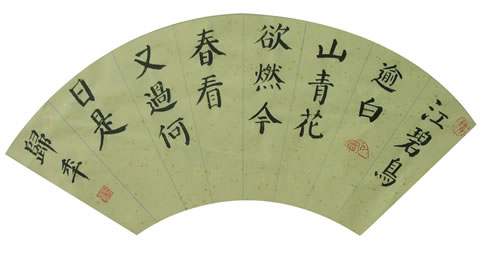 江碧鳥
逾白
山青花
欲燃今
春看
又過何
日是
歸秊